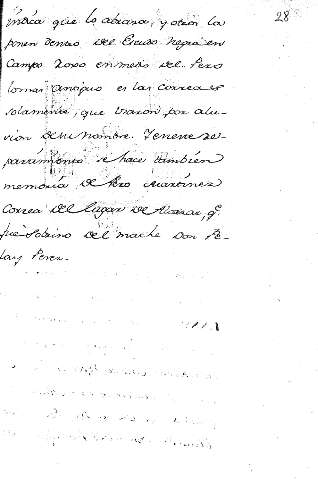 28
indica que lo abraza, y otros la
ponen dentro del Escudo negra en
Campo de oro en metis del. Pero
lo mas antiguo es las Correas
solamente, que usaron por alu-
sion de su nombre. Tenere
parrimonto se hace tambien
memoria de Pero Martinez
Correa del Lugar de Alcazar, q.e
fue Sobrino del mache Don Pe-
lay Perez.